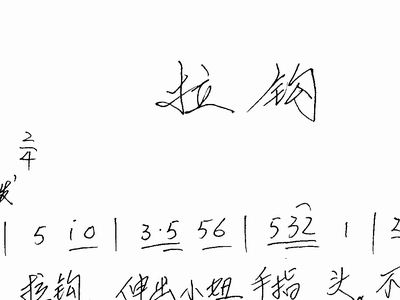 拉钩
2/4
| 5 i 0 | 3·5 56 | 532 1 |
拉钩 伸出小妞手指头。不